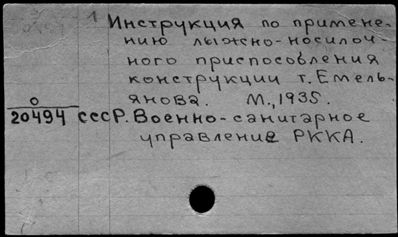 1 Инструкция по примене-
нию лыжно-носилоч-
ного приспособления
конструкции т. Емель-
янова. М., 1935.
О
20494 СССР. Военно-санитарное
управление РККА.